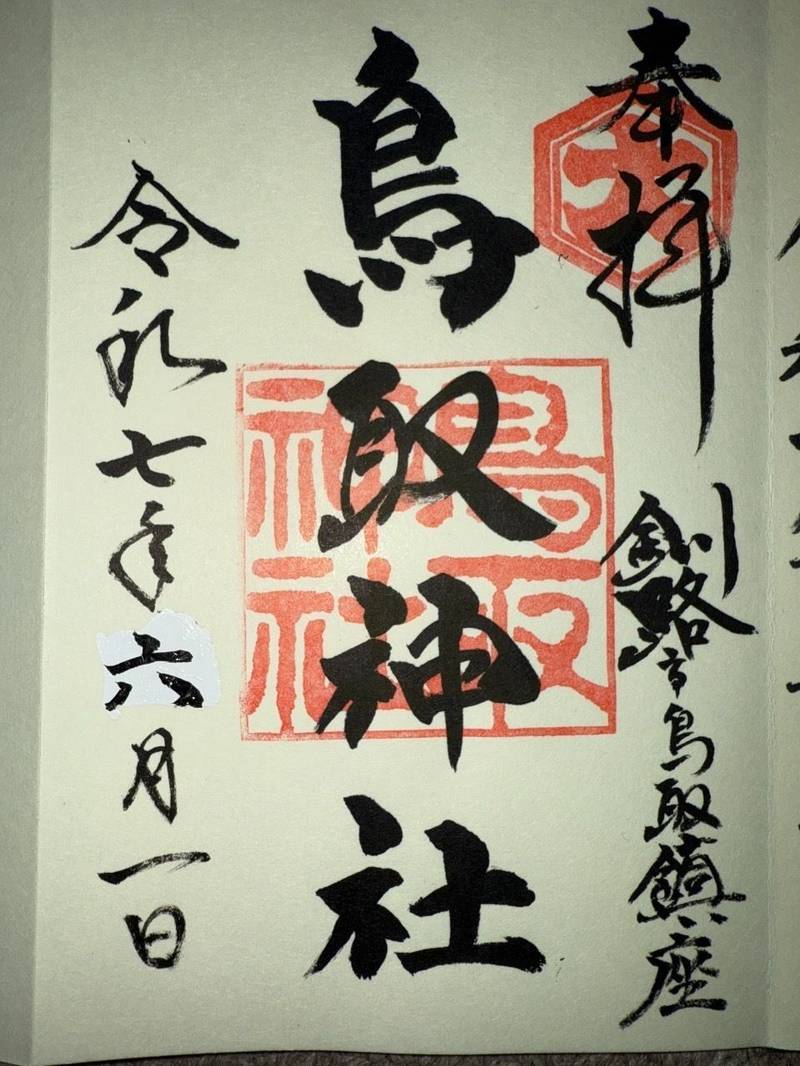 奉拝
釧路市鳥取鎮座
鳥取神社
鳥取
神社
令和七年六月一日